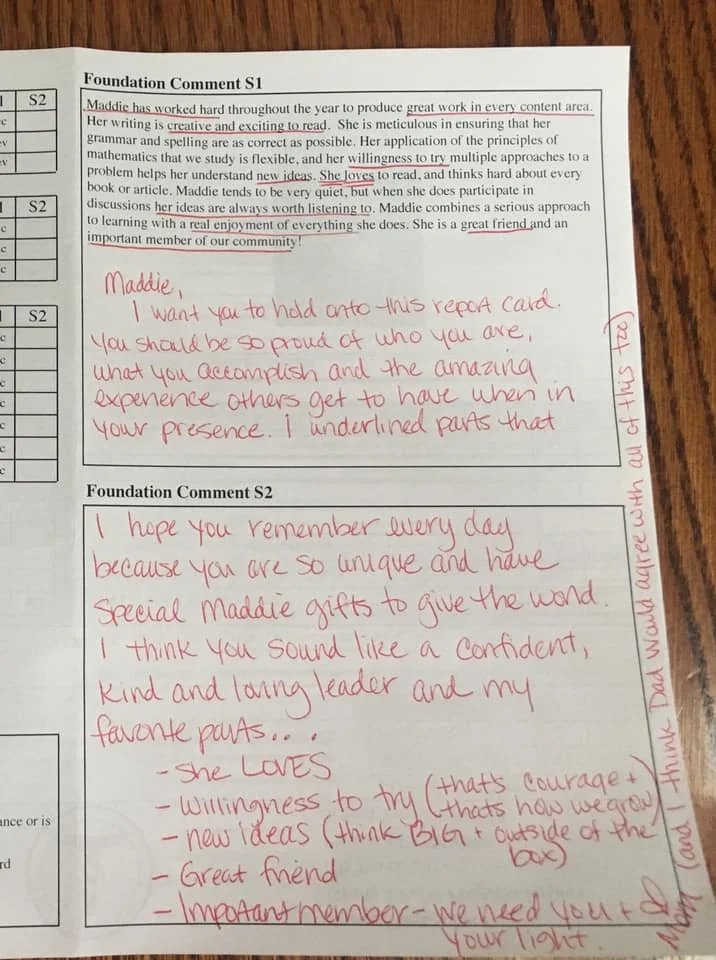 S2
S2
S2
ance or is
rd
Foundation Comment S1
Maddie has worked hard throughout the year to produce great work in every content area.
Her writing is creative and exciting to read. She is meticulous in ensuring that her
grammar and spelling are as correct as possible. Her application of the principles of
mathematics that we study is flexible, and her willingness to try multiple approaches to a
problem helps her understand new ideas. She loves to read, and thinks hard about every
book or article. Maddie tends to be very quiet, but when she does participate in
discussions her ideas are always worth listening to. Maddie combines a serious approach
to learning with a real enjoyment of everything she does. She is a great friend and an
important member of our community!
Maddie,
I want you to hold onto this report card.
You should be so proud of who you are,
what you accomplish and the amazing
experience others get to have when in
your presence. I underlined parts that
Foundation Comment S2
I hope you remember every day
because you are so unique and have
special Maddie gifts to give the world.
I think you sound like a confident,
kind and loving leader and my
favorite parts...
- She LOVES
- Willingness to try (thats courage +
thats how we grow)
- new ideas (think BIG + outside of the
box)
- Great friend
- Important member - we need you +
your light.
Mom (and I think Dad would agree with all of this too)